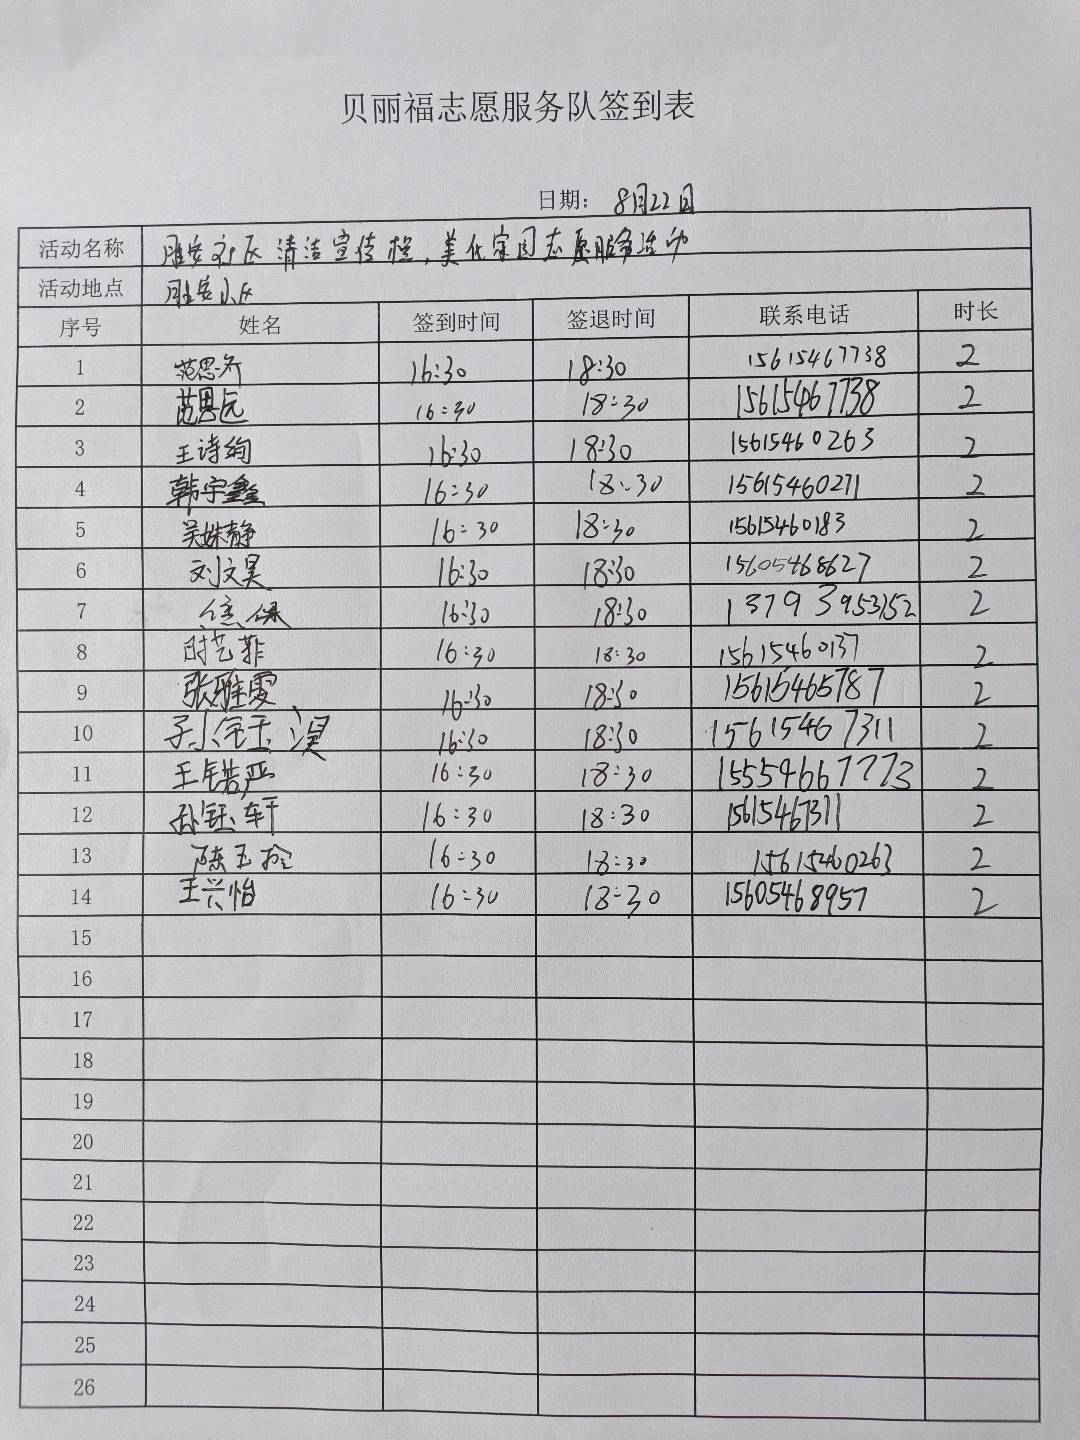 贝丽福志愿服务队签到表
日期： 8月22日
活动名称 胜安社区清洁宣传栏，美化家园志愿服务活动
活动地点 胜安小区
序号 姓名 签到时间 签退时间 联系电话 时长
1 范思齐 16:30 18:30 15615467738 2
2 范思远 16:30 18:30 15615467738 2
3 王诗绚 16:30 18:30 15615460263 2
4 韩宇鑫 16:30 18:30 15615460271 2
5 吴姝静 16:30 18:30 15615460183 2
6 刘文昊 16:30 18:30 15605468627 2
7 16:30 18:30 13793953152 2
8 时艺菲 16:30 18:30 15615460137 2
9 张雅雯 16:30 18:30 15615465787 2
10 16:30 18:30 15615467311 2
11 王锴严 16:30 18:30 15554667773 2
12 孙钰轩 16:30 18:30 15615467311 2
13 陈玉 16:30 18:30 15615460263 2
14 王兴怡 16:30 18:30 15605468957 2
15
16
17
18
19
20
21
22
23
24
25
26